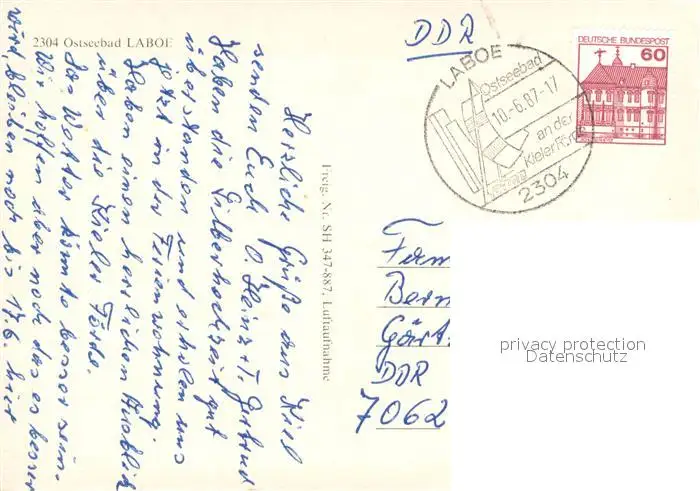 2304 Ostseebad LABOE
Herzliche Grüße aus Kiel
senden Euch O. Heinz + T. Gertrud
Haben die Silberhochzeit gut
überstanden und erholen uns
jetzt in der Ferienwohnung.
Haben einen herrlichen Ausblick
über die Kieler Förde.
Das Wetter könnte besser sein.
Wir hoffen aber noch das es besser
wird, bleiben noch bis 17.6. hier
Freig. Nr. SH 347-887, Luftaufnahme
DDR
LABOE
Ostseebad
10.-6.87-17
an der
Kieler
2304
DEUTSCHE BUNDESPOST
60
Fam
Bern
Gärt
DDR
7062
privacy protection
Datenschutz